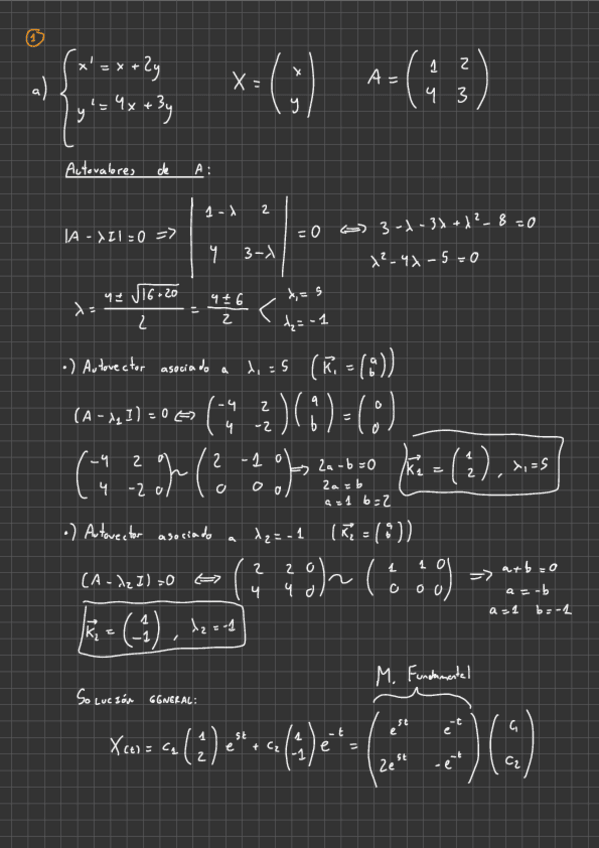 1
a) { x' = x + 2y   y' = 4x + 3y   X = ( x ; y )   A = ( 1 2 ; 4 3 )
Autovalores de A:
|A - λI| = 0 => | 1-λ 2 ; 4 3-λ | = 0 <=> 3 - λ - 3λ + λ² - 8 = 0
λ² - 4λ - 5 = 0
λ = (4 ± √(16+20))/2 = (4 ± 6)/2 < λ₁ = 5   λ₂ = -1
·) Autovector asociado a λ₁ = 5 (K⃗₁ = (a ; b))
(A - λ₁I) = 0 <=> ( -4 2 ; 4 -2 ) ( a ; b ) = ( 0 ; 0 )
( -4 2 0 ; 4 -2 0 ) ~ ( 2 -1 0 ; 0 0 0 ) => 2a - b = 0
2a = b
a = 1 b = 2
K⃗₁ = ( 1 ; 2 ), λ₁ = 5
·) Autovector asociado a λ₂ = -1 (K⃗₂ = (a ; b))
(A - λ₂I) = 0 <=> ( 2 2 0 ; 4 4 0 ) ~ ( 1 1 0 ; 0 0 0 ) => a + b = 0
a = -b
a = 1 b = -1
K⃗₂ = ( 1 ; -1 ), λ₂ = -1
M. Fundamental
SOLUCIÓN GENERAL:
X(t) = c₁ ( 1 ; 2 ) e^5t + c₂ ( 1 ; -1 ) e^-t = ( e^5t e^-t ; 2e^5t -e^-t ) ( c₁ ; c₂ )